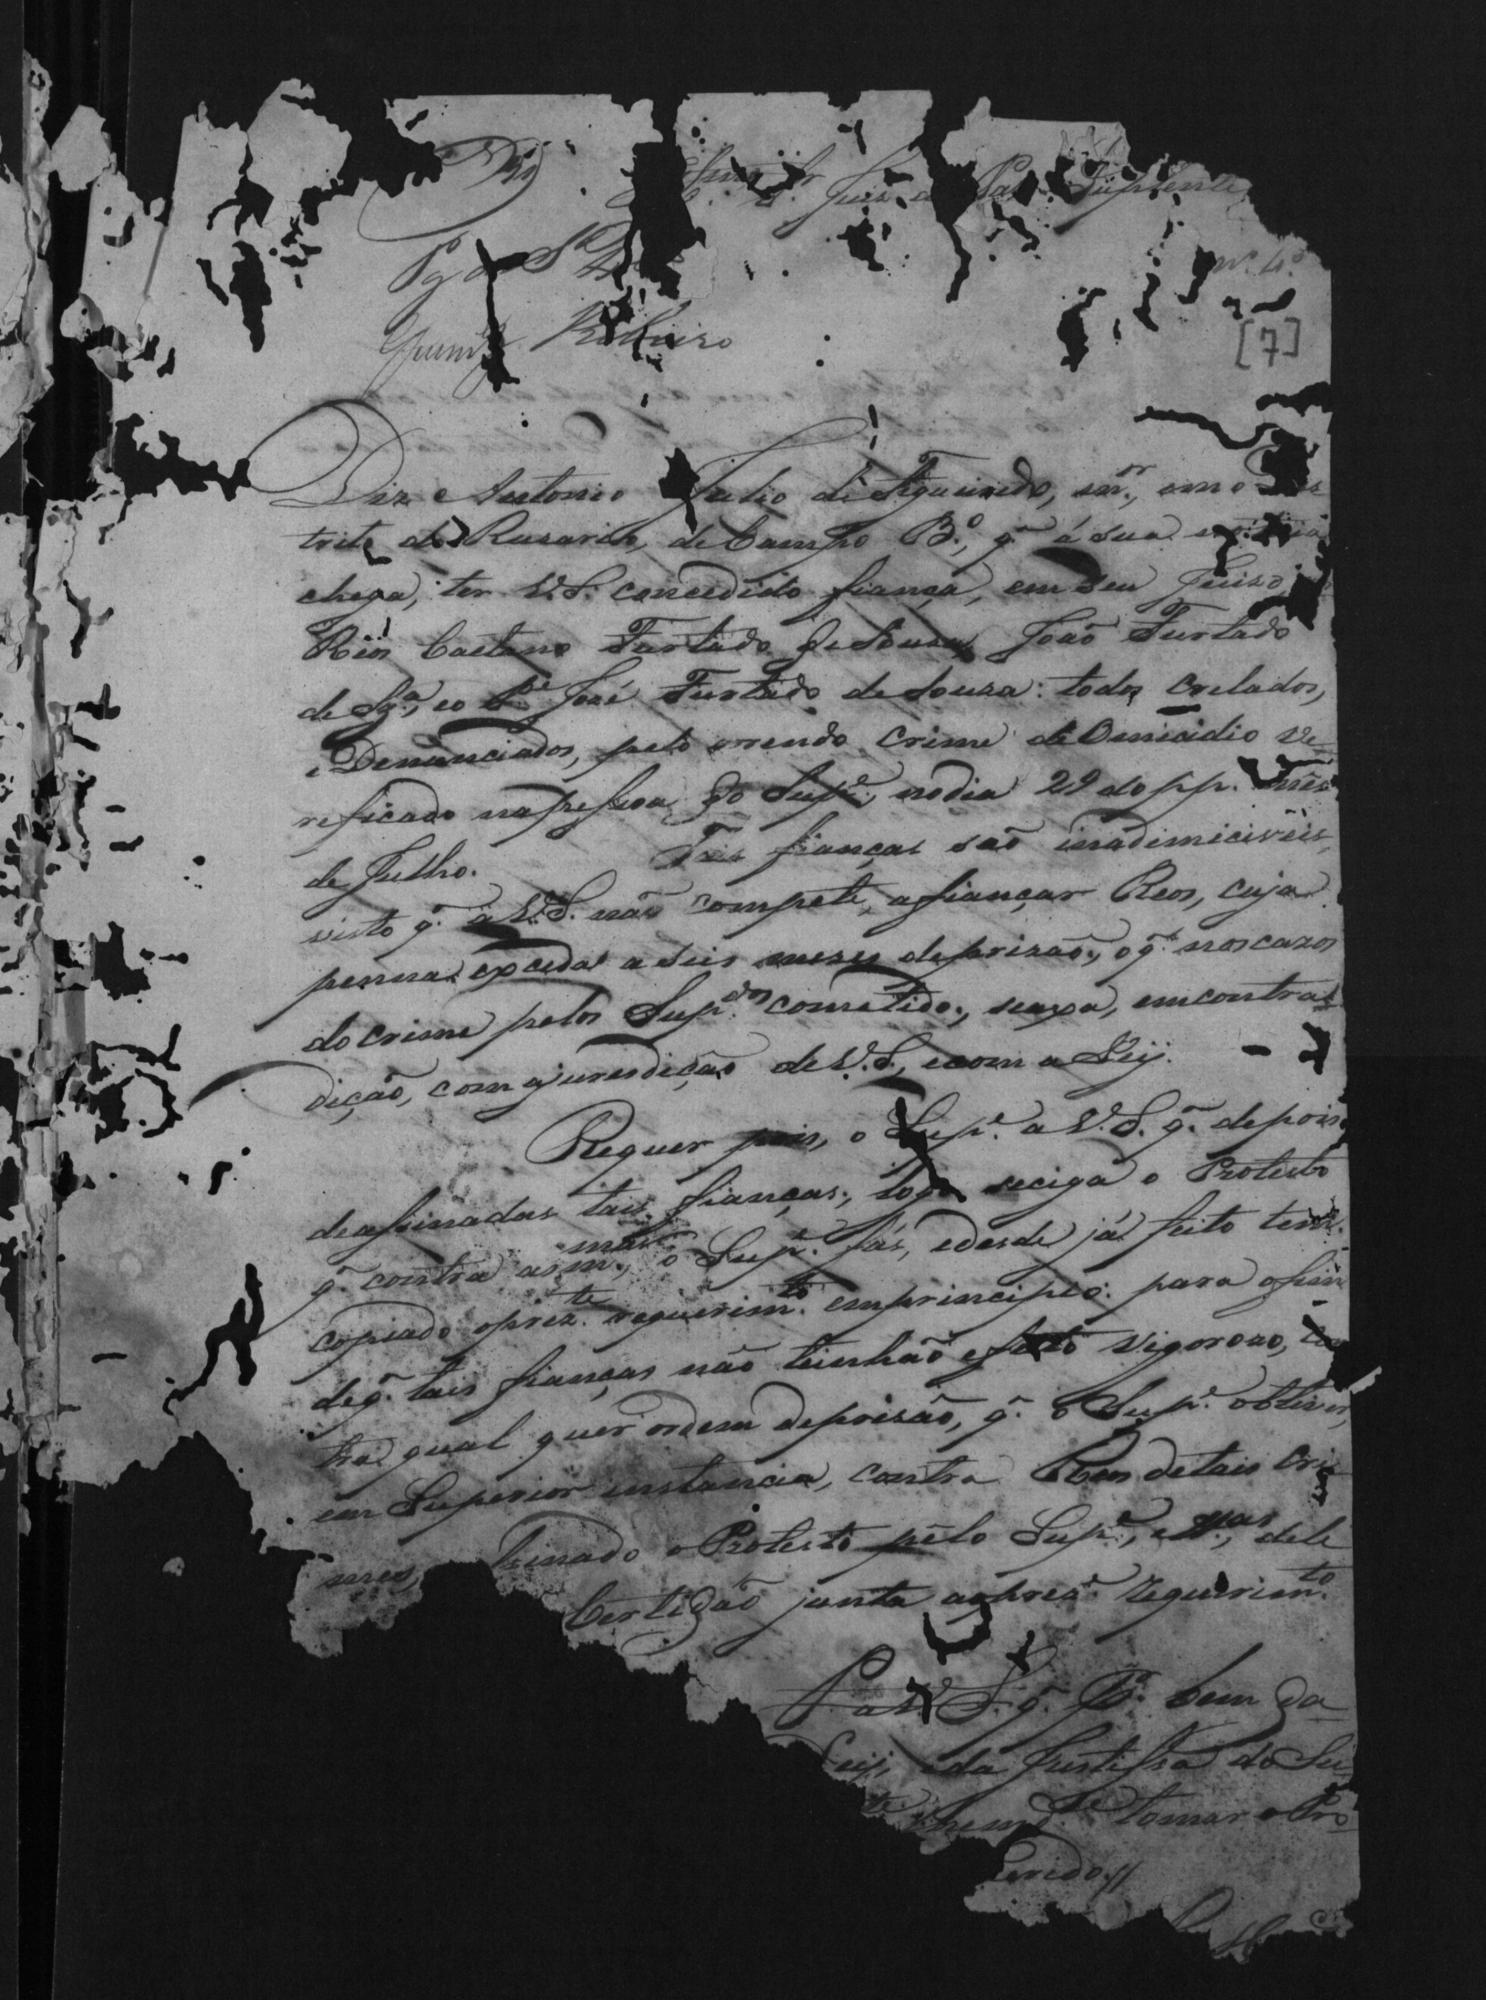 Juis de Pas Suplente
Pg
Ribeiro
nº. 4º.
[7]
Diz Antonio Julio de Figueiredo, snr., em o Des
trito do Rusario, de Campo B.º, q. á sua
chega, ter V.S. concedido fiança, em seu Juiso
Reos Caetano Furtado de Sousa, João Furtado
de Sza, eo Pe. José Furtado de Souza: todos crelados,
e Denunciados, pelo orrendo crime de Omicidio ve-
reficado na pessoa do Supe., no dia 29 do pp. mês
de Julho. Tais fianças são inadimicivéis,
visto q. a V.S. não compete, afiançar Reos, cuja
penna exceda a seis mezes de prizão, o q. nos cazos
do crime pelos Sup.dos cometido, seaxa, em contra-
dição, com ajuresdição de V.S., e com a Leij.
Requer pois, o Supe. a V.S. q. depois
de assinadas tais fianças, logo seciga o Protesto
q. contra as m.mas, o Supe. fás, e desde já feito tem.
copiado o prez.te requerim.to em principio: para o fim
de q. tais fianças não tenhão efeito vigorozo, con
tra qual quer ordem de prisão, q. o Supe. obtiver,
em Superior instancia, contra Reos de tais cri
mes, sinado o Protesto pelo Supe., e dele
Certidão junta ao prez.e requerim.to
P. a V.S. q. P.r bem da
Leij, e da Justissa do Su
te. tomar o Pro
erido.//